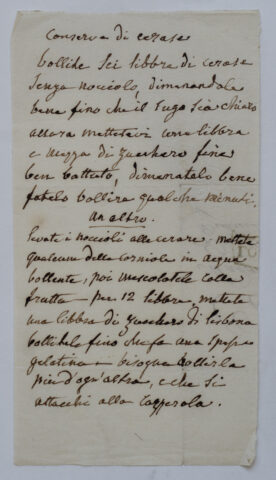 Conserva di cerase
bollite sei libbra di cerase
senza nocciolo, dimenandole
bene fino che il sugo sia chiaro
allora mettetevi una libbra
e mezza di zucchero fine
ben battuto, dimenatelo bene
fatelo bollire qualche minuti.
un altro.
Levate i noccioli alle cerase mettete
qualcuna delle corniola in acqua
bollente, poi mescolatele colla
frutta – per 12 libbre, mettete
una libbra di zucchero di Lisbona
bollitele fino che fa una
gelatina – bisogna bollirla
più d'ogn'altra, e che si
attacchi alla casserola.